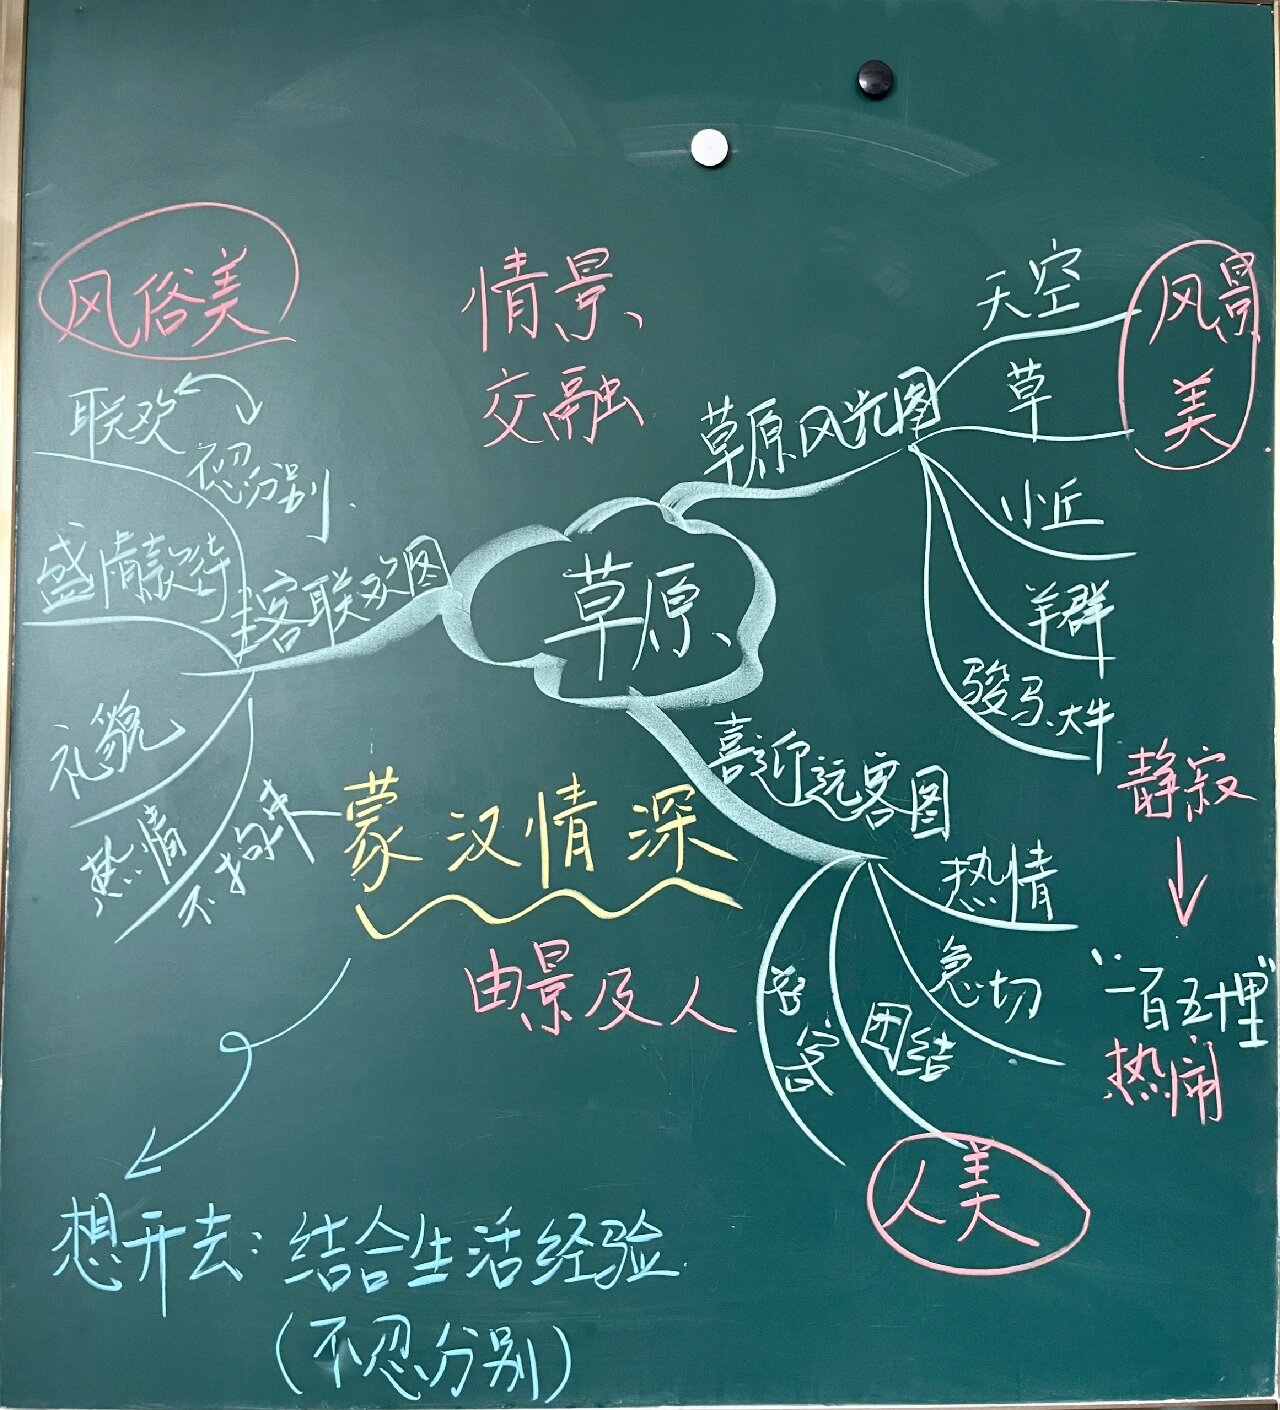 风俗美
情景
交融
天空
风景
美
草
草原风光图
联欢
不忍分别
小丘
盛情款待
主客联欢图
草原
羊群
骏马、大牛
礼貌
热情
不拘束
蒙汉情深
喜迎远客图
静寂
热情
急切
团结
由景及人
"一百五十里"
热闹
人美
想开去：结合生活经验
（不忍分别）